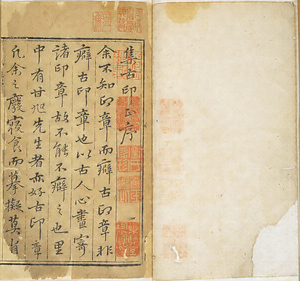 集古印正序
余不知印章而癖古印章非
癖古印章也以古人心畫寄
諸印章故不能不癖之也里
中有甘旭先生者亦好古印章
凡余之癈寢食而摹擬莫自